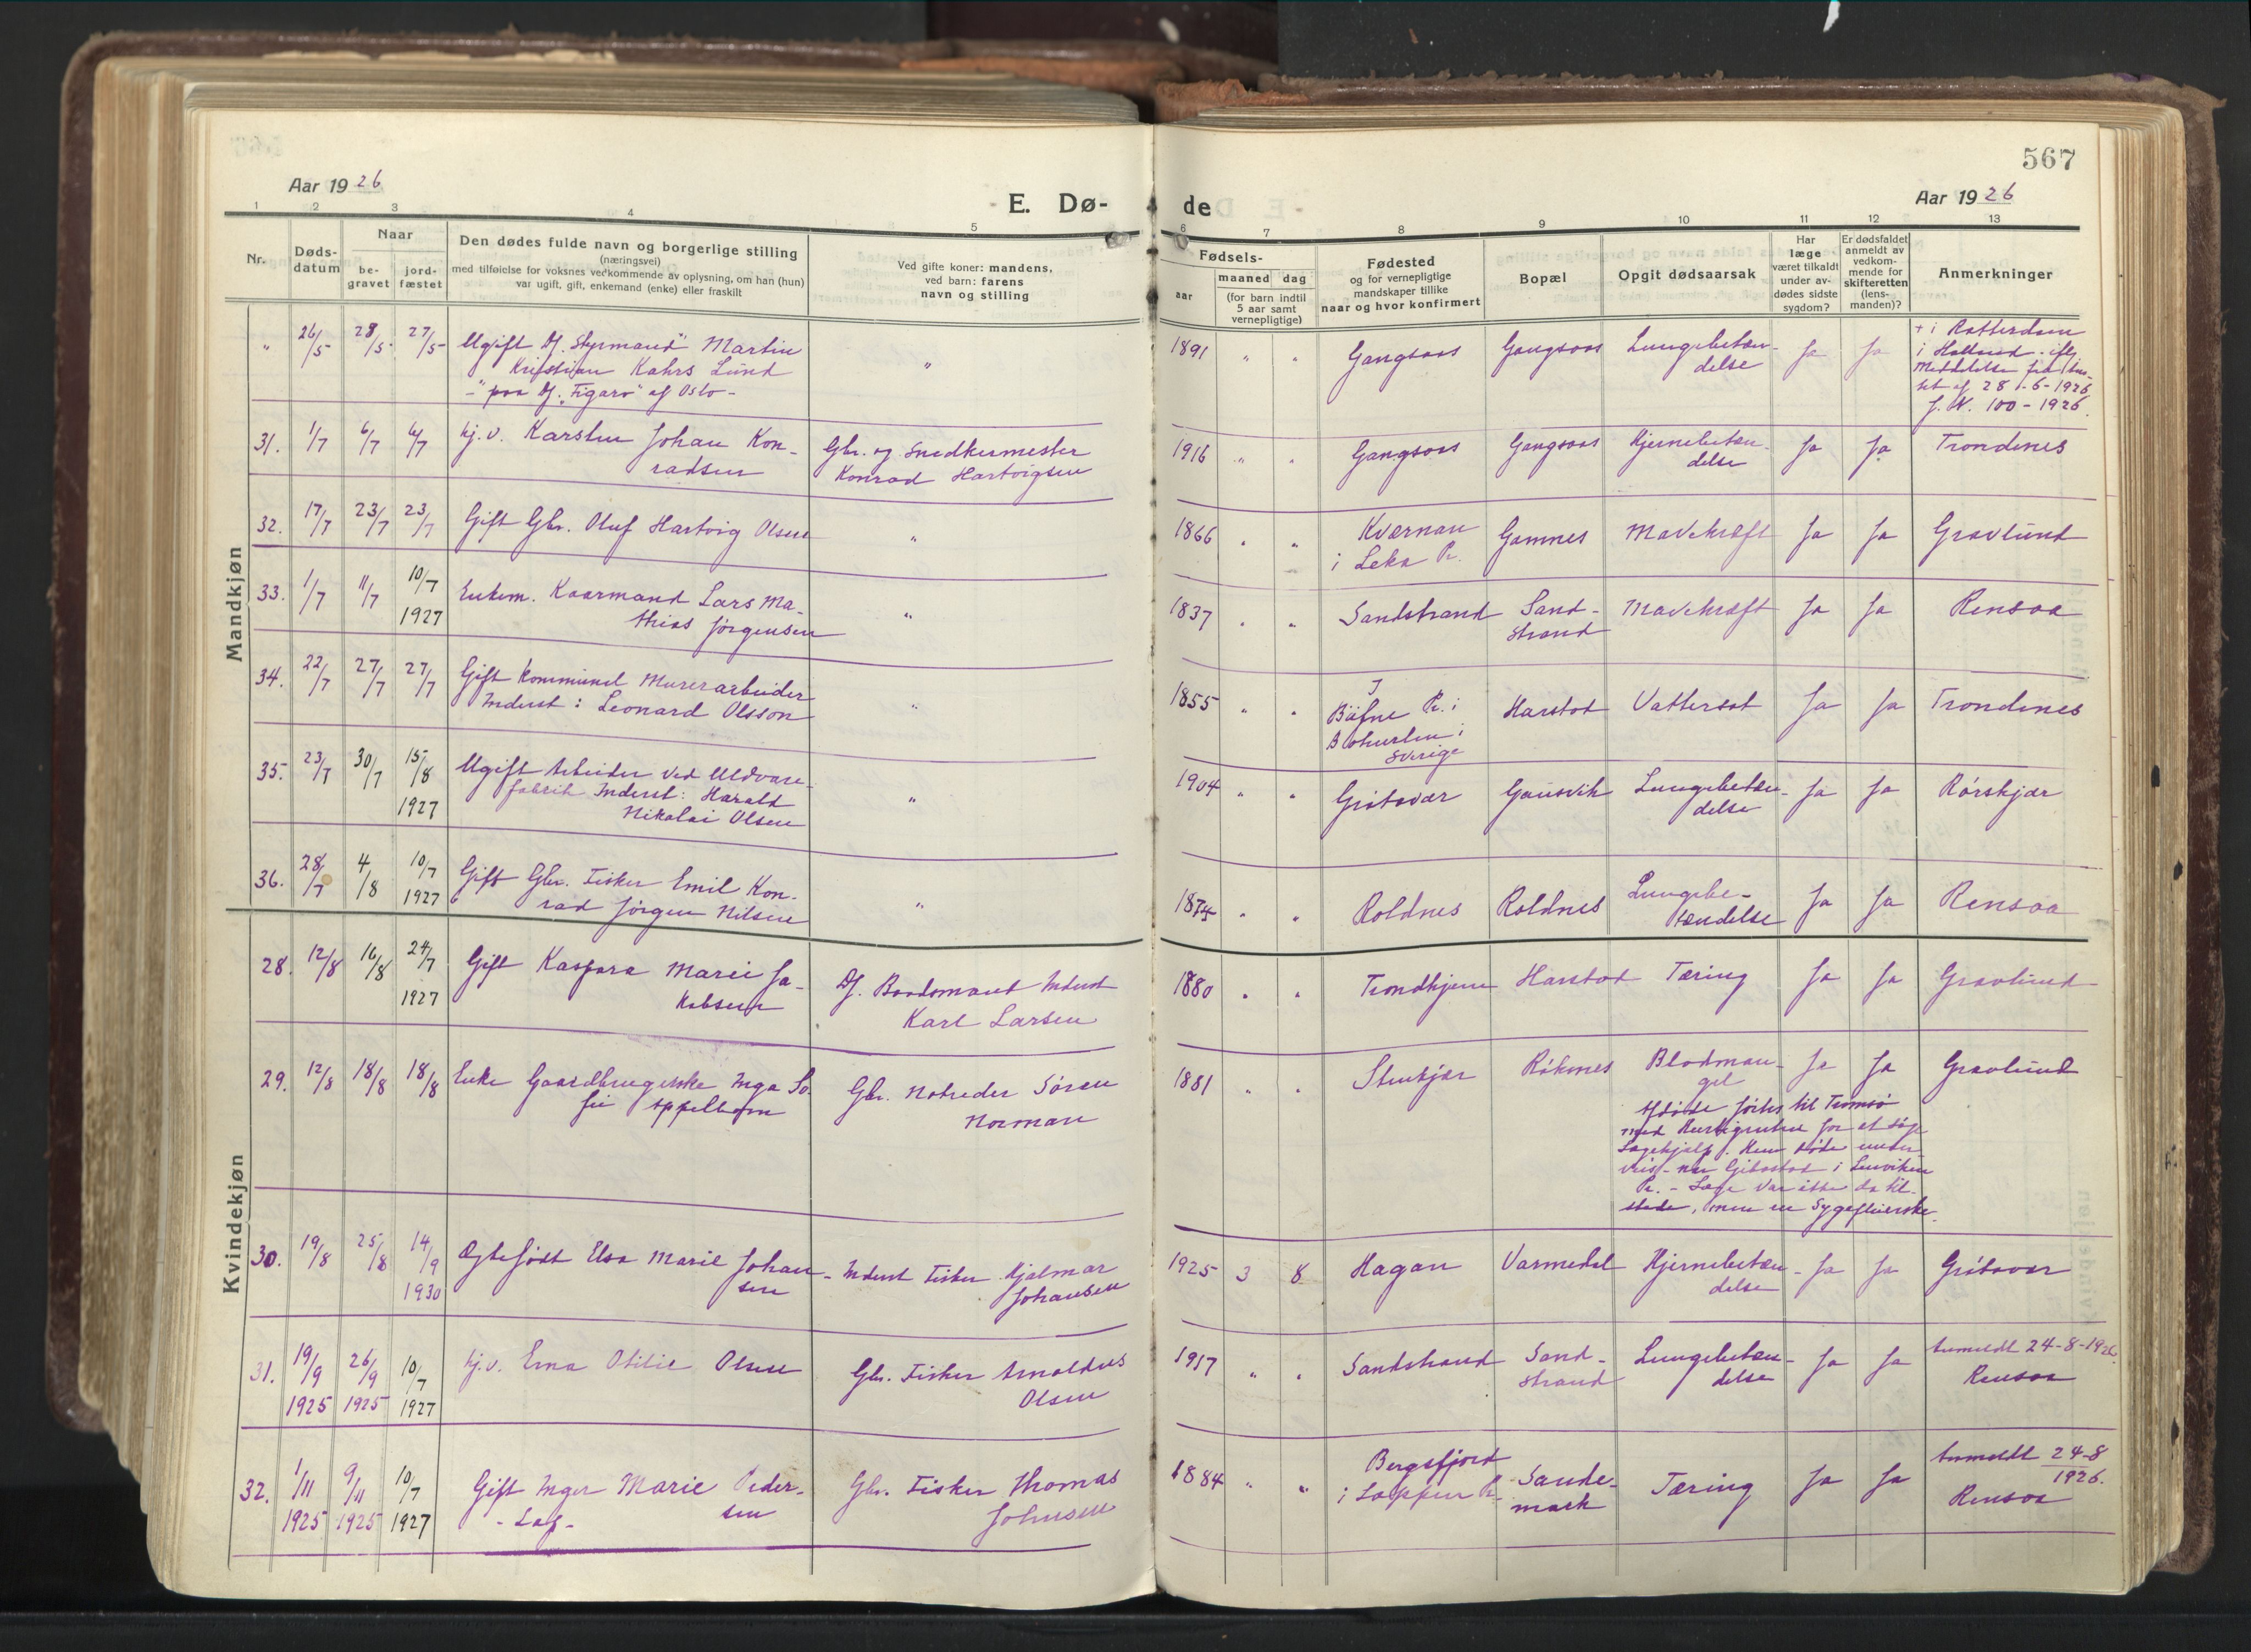 567
Aar 1926
Aar 1926
E. Dø-
de
1 2 3 4 5 6 7 8 9 10 11 12 13
Nr.
Døds-
datum
Naar
be-
gravet
jord-
fæstet
Den dødes fulde navn og borgerlige stilling
(næringsvei)
med tilføielse for voksnes vedkommende av oplysning, om han (hun)
var ugift, gift, enkemand (enke) eller fraskilt
Ved gifte koner: mandens,
ved barn: farens
navn og stilling
Fødsels-
aar
maaned dag
(for barn indtil
5 aar samt
vernepligtige)
Fødested
og for vernepligtige
mandskaper tillike
naar og hvor konfirmert
Bopæl
Opgit dødsaarsak
Har
læge
været tilkaldt
under av-
dødes sidste
sygdom?
Er dødsfaldet
anmeldt av
vedkom-
mende for
skifteretten
(lens-
manden)?
Anmerkninger
Mandkjøn
" 26/5 28/5 27/5 Ugift Df. Styrmand Martin
Kristian Kahrs Lund
- " paa Df. "Figaro" af Oslo -
" 1891 " " Gangsaas Gangsaas Lungebetæn-
delse Ja Ja + i Rotterdam
i Holland
28-6-1926
J. N. 100-1926.
31. 1/7 6/7 6/7 Kj. v. Karsten Johan Kon-
radsen
Gbr. og Snedkermester
Konrad Hartvigsen
1916 " " Gangsaas Gangsaas Hjernebetæn-
delse Ja Ja Trondenes
32. 17/7 23/7 23/7 Gift Gbr. Oluf Hartvig Olsen " 1866 " " Kværnan
i Leka Pr. Gamnes Mavekræft Ja Ja Gravlund
33. 1/7 11/7 10/7
1927 Enkem. Kaarmand Lars Ma-
thias Jørgensen " 1837 " " Sandstrand Sand-
strand Mavekræft Ja Ja Rensaa
34. 22/7 27/7 27/7 Gift Kommunel Murerarbeider
Inderst: Leonard Olsson " 1855 " " I
Bäfne Pr. i
Bohuslen i
Sverige Harstad Vattersot Ja Ja Trondenes
35. 23/7 30/7 15/8
1927 Ugift Arbeider ved Uldvare-
fabrik Inderst: Harald
Nikolai Olsen " 1904 " " Grøtavær Gausvik Lungebetæn-
delse Ja Ja Rørskjær
36. 28/7 4/8 10/7
1927 Gift Gbr. Fisker Emil Kon-
rad Jørgen Nilsen " 1874 " " Roldnes Roldnes Lungebe-
tændelse Ja Ja Rensaa
Kvindekjøn
28. 12/8 16/8 24/7
1927 Gift Kaspara Marie Ja-
kobsen
Df. Baadsmand Inderst
Karl Larsen
1880 " " Trondhjem Harstad Tæring Ja Ja Gravlund
29. 12/8 18/8 18/8 Enke Gaardbrugerske Inga So-
fie Appelbom
Gbr. Notreder Søren
Norman
1881 " " Stenkjær Røkenes Blodman-
gel Ja Ja Gravlund
Afdøde førtes til Tromsø
med Hurtigruten for at søge
Lægehjælp. Hun døde under-
veis - nær Gibostad i Lenviken
Pr. - Læge var ikke da til-
stede, men en Sygepleierske.
30. 19/8 25/8 14/9
1930 Ægtefødt Elsa Marie Johan-
sen
Inderst Fisker Hjalmar
Johansen
1925 3 8 Hagan Varmedal Hjernebetæn-
delse Ja Ja Grøtavær
31. 19/9
1925 26/9
1925 10/7
1927 Kj. v. Erna Otilie Olsen
Gbr. Fisker Arnoldus
Olsen
1917 " " Sandstrand Sand-
strand Lungebetæn-
delse Ja Ja Anmeldt 24-8-1926.
Rensaa
32. 1/11
1925 9/11
1925 10/7
1927 Gift Inger Marie Peder-
sen
- Lap -
Gbr. Fisker Thomas
Johnsen
1884 " " Bergsfjord
i Loppen Pr. Sande-
mark Tæring Ja Ja Anmeldt 24-8
1926.
Rensaa